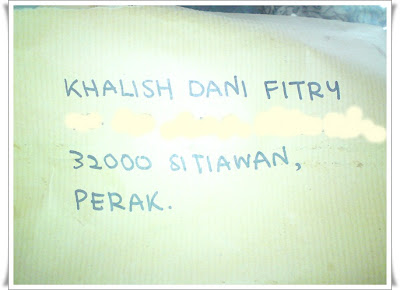 KHALISH DANI FITRY
32000 SITIAWAN,
PERAK.